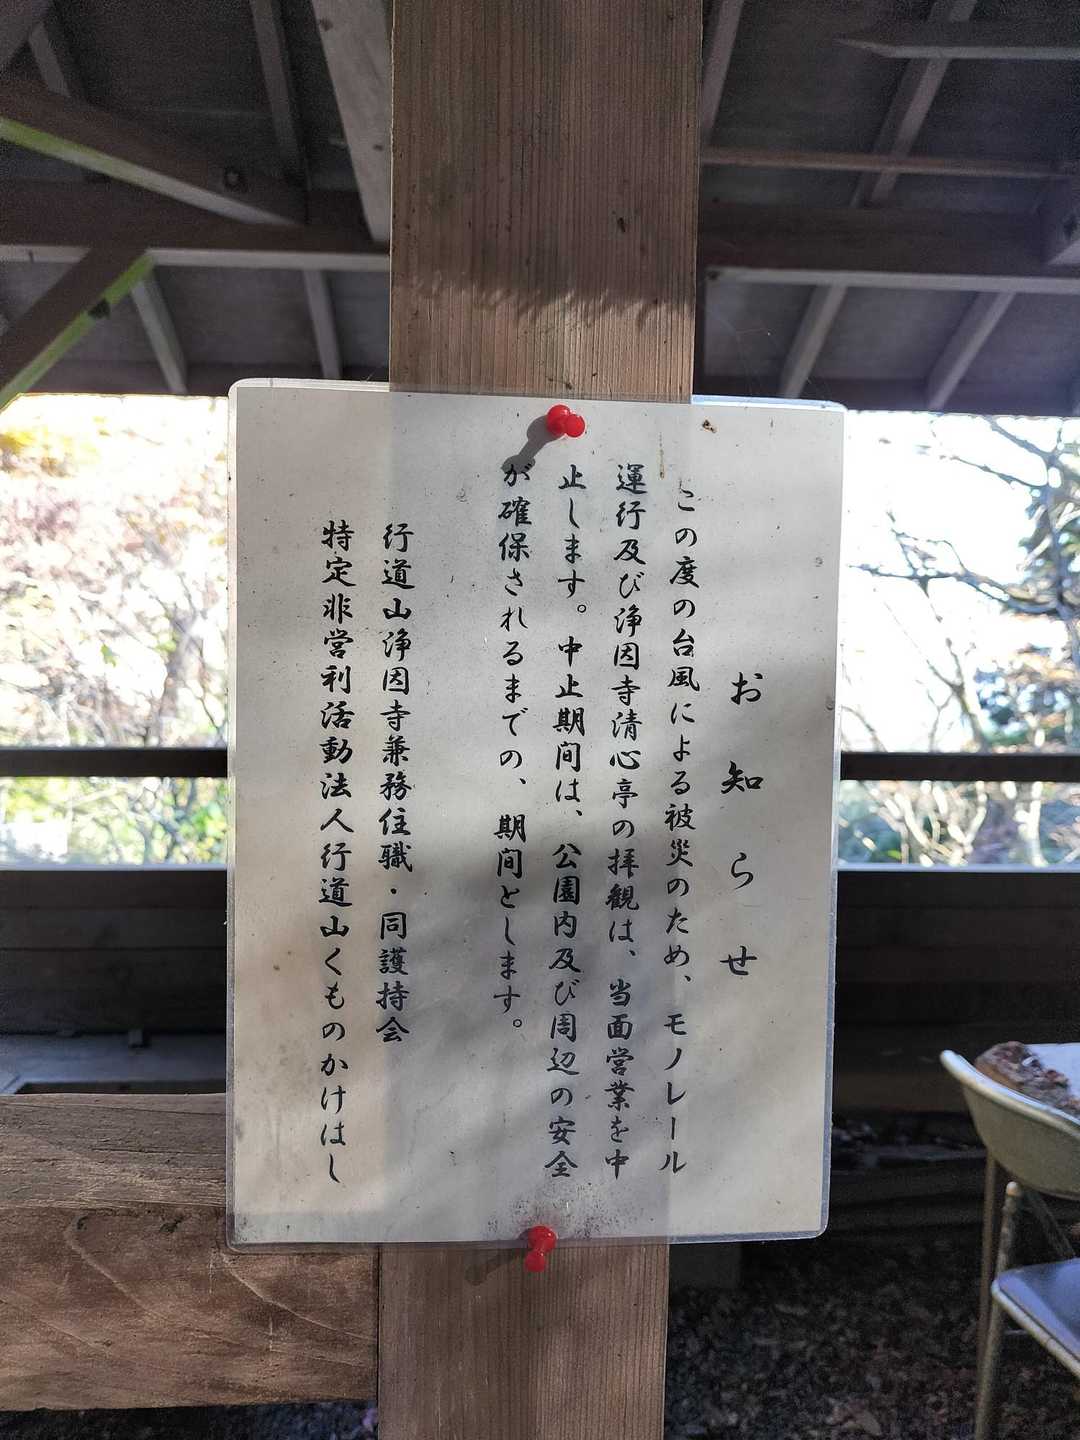 お知らせ
この度の台風による被災のため、モノレール
運行及び浄因寺清心亭の拝観は、当面営業を中
止します。中止期間は、公園内及び周辺の安全
が確保されるまでの、期間とします。
行道山浄因寺兼務住職・同護持会
特定非営利活動法人行道山くものかけはし